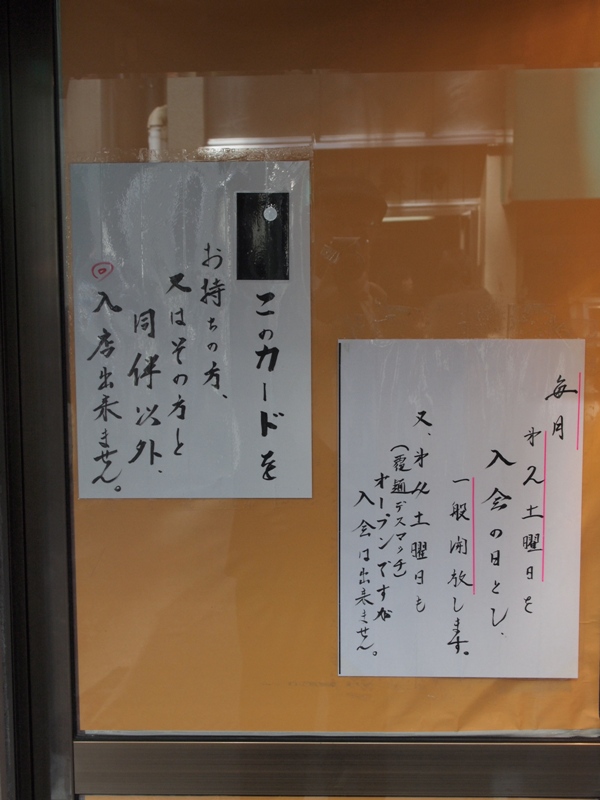 このカードを
お持ちの方、
又はその方と
同伴以外、
◎入店出来ません。
毎月
第2土曜日を
入会の日とし、
一般開放します。
又、第4土曜日も
(覆麺デスマッチ)
オープンですが
入会は出来ません。